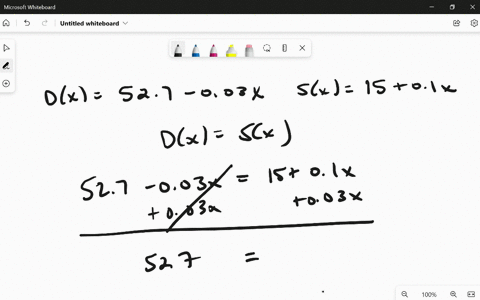 Microsoft Whiteboard
Untitled whiteboard
D(x) = 52.7 - 0.03x   S(x) = 15 + 0.1x
D(x) = S(x)
52.7 - 0.03x = 15 + 0.1x
+ 0.03x   + 0.03x
52.7 =
100%